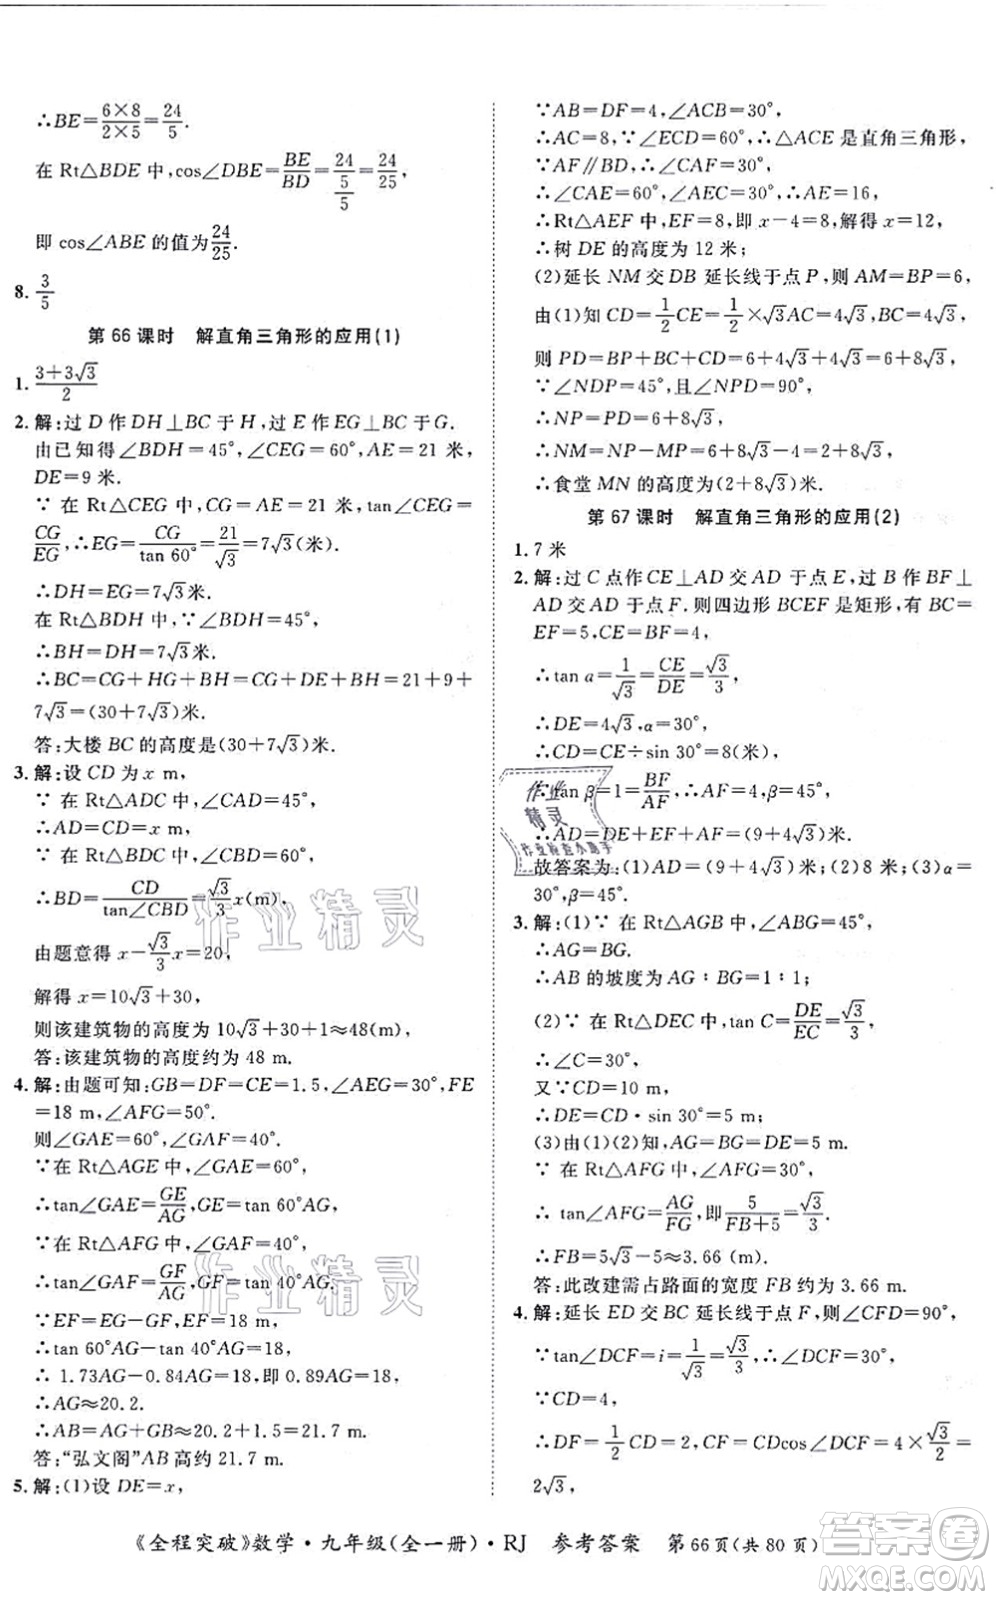 ∴BE=6×8/2×5=24/5.
在 Rt△BDE 中,cos∠DBE=BE/BD=24/5/5=24/25,
即 cos∠ABE 的值为24/25.
8. 3/5
第 66 课时 解直角三角形的应用(1)
1. 3+3√3/2
2. 解:过 D 作 DH⊥BC 于 H,过 E 作 EG⊥BC 于 G.
由已知得∠BDH=45°,∠CEG=60°,AE=21 米,
DE=9 米.
∵ 在 Rt△CEG 中,CG=AE=21 米,tan∠CEG=
CG/EG,∴EG=CG/tan 60°=21/√3=7√3(米).
∴DH=EG=7√3米.
∵ 在 Rt△BDH 中,∠BDH=45°,
∴BH=DH=7√3米.
∴BC=CG+HG+BH=CG+DE+BH=21+9+
7√3=(30+7√3)米.
答:大楼 BC 的高度是(30+7√3)米.
3. 解:设 CD 为 x m,
∵ 在 Rt△ADC 中,∠CAD=45°,
∴AD=CD=x m,
∵ 在 Rt△BDC 中,∠CBD=60°,
∴BD=CD/tan∠CBD=√3/3x(m),
由题意得 x-√3/3x=20,
解得 x=10√3+30,
则该建筑物的高度为 10√3+30+1≈48(m),
答:该建筑物的高度约为 48 m.
4. 解:由题可知:GB=DF=CE=1.5,∠AEG=30°,FE
=18 m,∠AFG=50°.
则∠GAE=60°,∠GAF=40°.
∵在 Rt△AGE 中,∠GAE=60°,
∴tan∠GAE=GE/AG,GE=tan 60°AG,
∵在 Rt△AFG 中,∠GAF=40°,
∴tan∠GAF=GF/AG,GF=tan 40°AG,
∵EF=EG-GF,EF=18,
∴tan 60°AG-tan 40°AG=18,
∴1.73AG-0.84AG=18,即 0.89AG=18,
∴AG≈20.2.
∴AB=AG+GB≈20.2+1.5=21.7 m.
答:“弘文阁”AB 高约 21.7 m.
5. 解:(1)设 DE=x,
∵AB=DF=4,∠ACB=30°,
∴AC=8,∵∠ECD=60°,∴△ACE 是直角三角形,
∵AF∥BD,∴∠CAF=30°,
∴∠CAE=60°,∠AEC=30°,∴AE=16,
∴Rt△AEF 中,EF=8,即 x-4=8,解得 x=12,
∴树 DE 的高度为 12 米;
(2)延长 NM 交 DB 延长线于点 P,则 AM=BP=6,
由(1)知 CD=1/2CE=1/2×√3AC=4√3,BC=4√3,
则 PD=BP+BC+CD=6+4√3+4√3=6+8√3,
∵∠NDP=45°,且∠NPD=90°,
∴NP=PD=6+8√3,
∴NM=NP-MP=6+8√3-4=2+8√3,
∴食堂 MN 的高度为(2+8√3)米.
第 67 课时 解直角三角形的应用(2)
1. 7 米
2. 解:过 C 点作 CE⊥AD 交 AD 于点 E,过 B 作 BF⊥
AD 交 AD 于点 F. 则四边形 BCEF 是矩形,有 BC=
EF=5,CE=BF=4,
∴tan α=1/√3=CE/DE=√3/3,
∴DE=4√3,α=30°,
∴CD=CE÷sin 30°=8,
∵tan β=1=BF/AF,∴AF=4,β=45°,
∴AD=DE+EF+AF=(9+4√3)米.
故答案为:(1)AD=(9+4√3)米;(2)8 米;(3)α=
30°,β=45°.
3. 解:(1)∵ 在 Rt△AGB 中,∠ABG=45°,
∴AG=BG.
∴AB 的坡度为 AG∶BG=1∶1;
(2)∵ 在 Rt△DEC 中,tan C=DE/EC=√3/3,
∴∠C=30°.
又∵CD=10 m.
∴DE=CD·sin 30°=5 m;
(3)由(1)(2)知,AG=BG=DE=5 m.
∵ 在 Rt△AFG 中,∠AFG=30°,
∴ tan∠AFG=AG/FG,即5/FB+5=√3/3.
∴FB=5√3-5≈3.66 (m).
答:此改建需占路面的宽度 FB 约为 3.66 m.
4. 解:延长 ED 交 BC 延长线于点 F,则∠CFD=90°,
∵tan∠DCF=i=1/√3=√3/3,∴∠DCF=30°,
∵CD=4,
∴DF=1/2CD=2,CF=CDcos∠DCF=4×√3/2=
2√3,
《全程突破》数学·九年级(全一册)·RJ 参考答案 第66页(共80页)
作业精灵
作业精灵
作业
精灵
作业检查小助手
答案圈
MXQE.COM